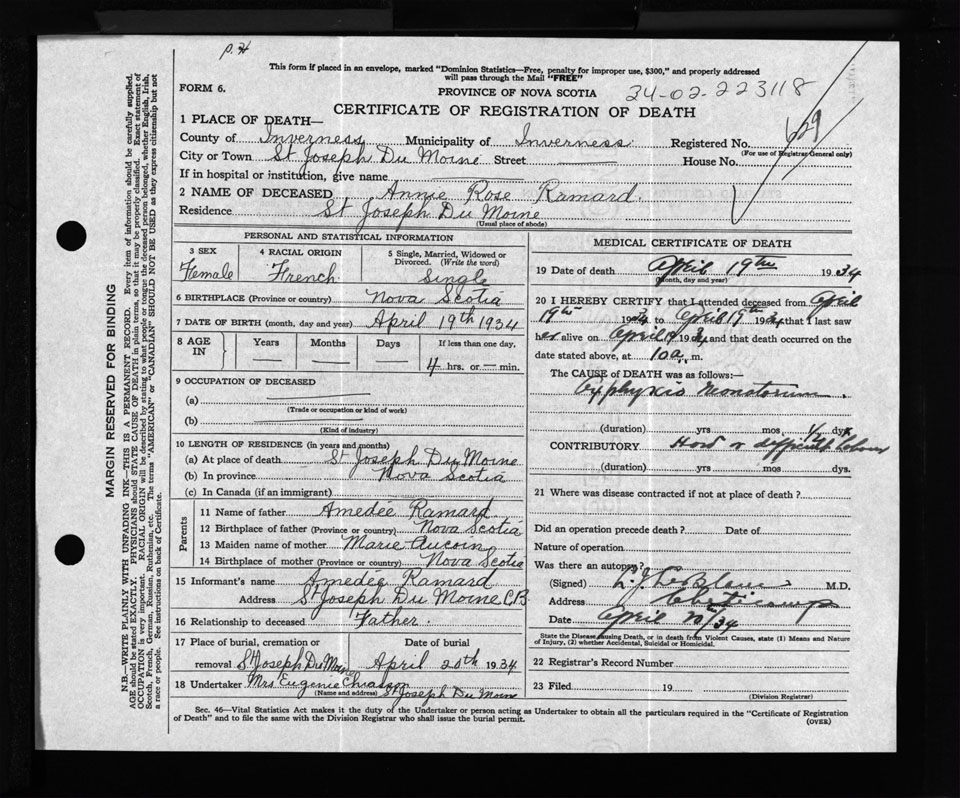 p. H
This form if placed in an envelope, marked "Dominion Statistics—Free, penalty for improper use, $300," and properly addressed
will pass through the Mail "FREE"
FORM 6.
PROVINCE OF NOVA SCOTIA 34-02-223118
CERTIFICATE OF REGISTRATION OF DEATH
1 PLACE OF DEATH—
629
County of Inverness Municipality of Inverness. Registered No.
(For use of Registrar General only)
City or Town St Joseph Du Moine Street House No.
If in hospital or institution, give name
2 NAME OF DECEASED Annie Rose Ramard.
Residence St Joseph Du Moine
(Usual place of abode)
PERSONAL AND STATISTICAL INFORMATION
3 SEX
Female
4 RACIAL ORIGIN
French
5 Single, Married, Widowed or
Divorced. (Write the word)
Single
6 BIRTHPLACE (Province or country) Nova Scotia
7 DATE OF BIRTH (month, day and year) April 19th 1934
8 AGE IN
Years Months Days If less than one day,
4 hrs. or — min.
9 OCCUPATION OF DECEASED
(a)
(Trade or occupation or kind of work)
(b)
(Kind of industry)
10 LENGTH OF RESIDENCE (in years and months)
(a) At place of death St Joseph Du Moine
(b) In province Nova Scotia
(c) In Canada (if an immigrant)
Parents
11 Name of father Amedée Ramard
12 Birthplace of father (Province or country) Nova Scotia
13 Maiden name of mother Marie Aucoin
14 Birthplace of mother (Province or country) Nova Scotia
15 Informant's name Amedée Ramard
Address St Joseph Du Moine C.B.
16 Relationship to deceased Father.
17 Place of burial, cremation or
removal St Joseph Du Moine
Date of burial
April 20th 1934
18 Undertaker Mrs Eugenie Chiasson
(Name and address) St Joseph Du Moine
MEDICAL CERTIFICATE OF DEATH
19 Date of death April 19th 1934
(Month, day and year)
20 I HEREBY CERTIFY that I attended deceased from April
19th 1934 to April 19th 1934 that I last saw
her alive on April 19 1934, and that death occurred on the
date stated above, at 10 a. m.
The CAUSE of DEATH was as follows:—
(duration) yrs mos ½ dys.
CONTRIBUTORY Hard & difficult labour
(duration) yrs. mos dys.
21 Where was disease contracted if not at place of death?
Did an operation precede death? Date of
Nature of operation
Was there an autopsy?
(Signed) M.D.
Address Cheticamp
Date April 20/34
State the Disease causing Death, or in death from Violent Causes, state (1) Means and Nature
of Injury, (2) whether Accidental, Suicidal or Homicidal.
22 Registrar's Record Number
23 Filed 19
(Division Registrar)
Sec. 46—Vital Statistics Act makes it the duty of the Undertaker or person acting as Undertaker to obtain all the particulars required in the "Certificate of Registration
of Death" and to file the same with the Division Registrar who shall issue the burial permit.
(OVER)
MARGIN RESERVED FOR BINDING
N.B.—WRITE PLAINLY WITH UNFADING INK—THIS IS A PERMANENT RECORD. Every item of information should be carefully supplied.
AGE should be stated EXACTLY. PHYSICIANS should STATE CAUSE OF DEATH in plain terms, so that it may be properly classified. Exact statement of
OCCUPATION is very important. RACIAL ORIGIN will be described by stating to what people or tongue the deceased person belonged, whether English, Irish,
Scotch, French, German, Russian, Ruthenian, etc. The terms "AMERICAN" or "CANADIAN" SHOULD NOT BE USED as they express citizenship but not
a race or people. See instructions on back of Certificate.